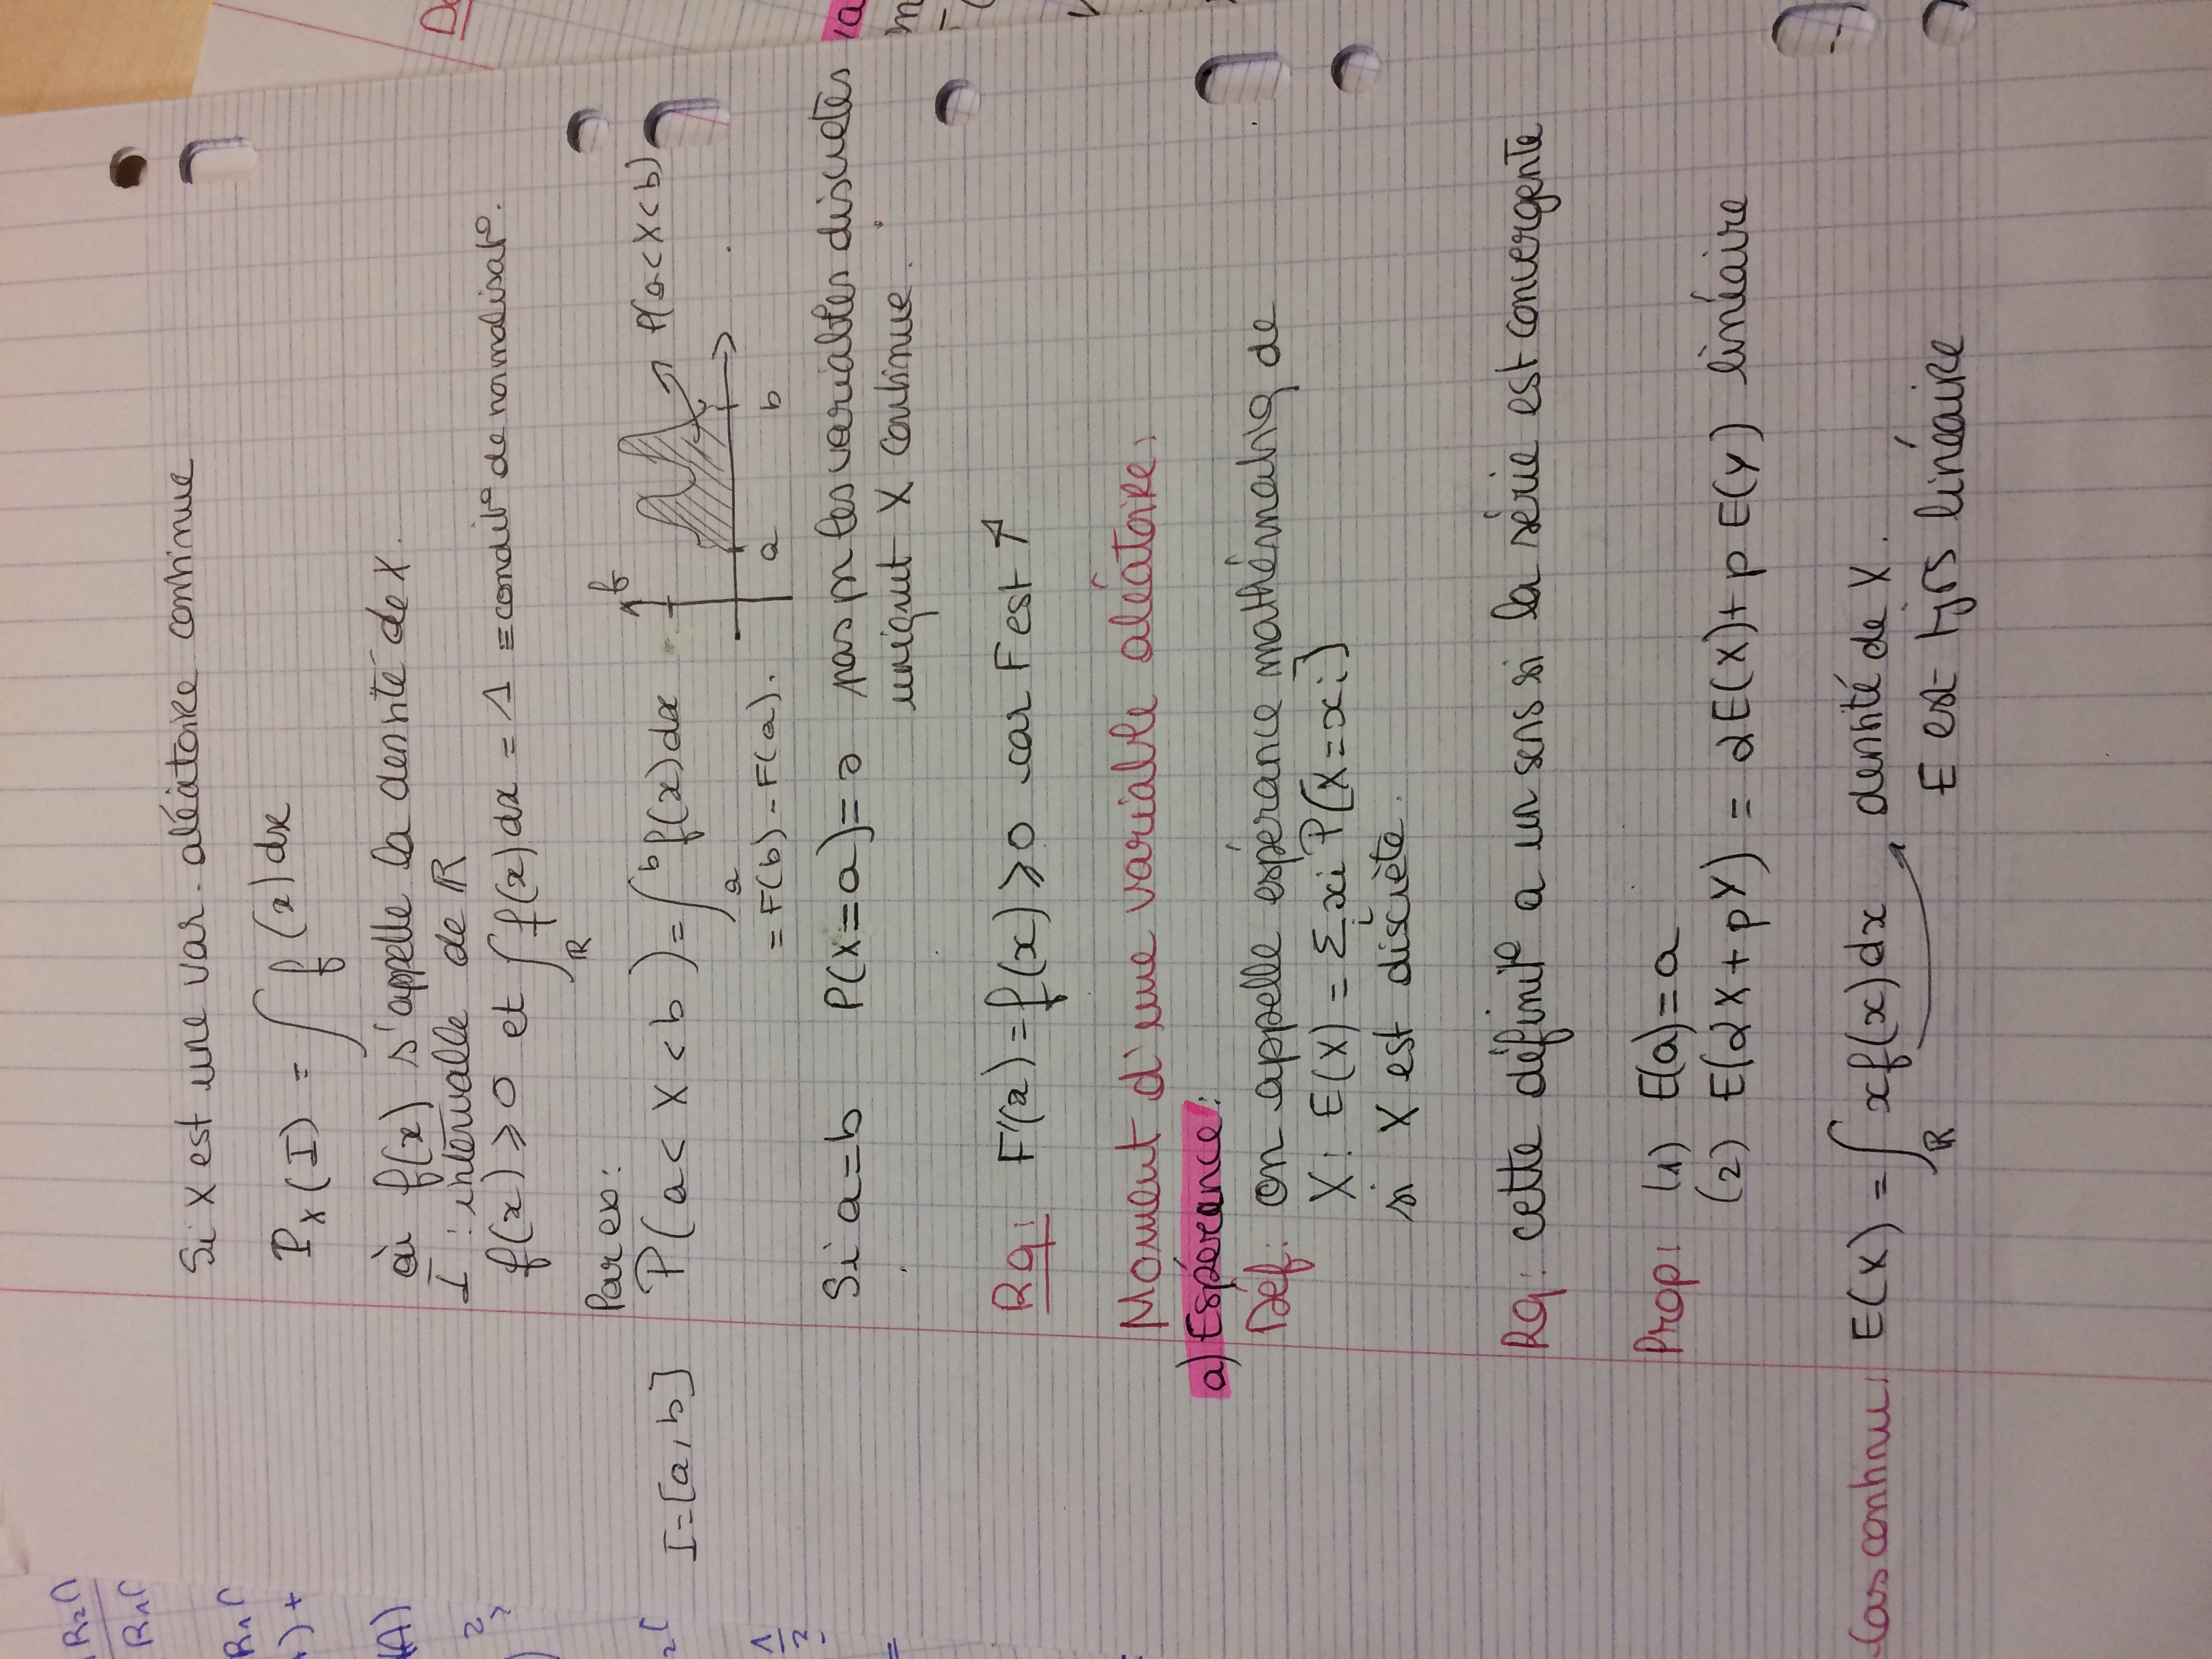 Si X est une var. aléatoire continue
P_X(I) = ∫ f(x) dx
où f(x) s'appelle la densité de X.
I : intervalle de ℝ
f(x) ⩾ 0 et ∫_ℝ f(x) dx = 1 ≡ condit° de normalisat°.
Par ex:
I=[a,b] P(a < X < b) = ∫_a^b f(x) dx
= F(b) - F(a).
f
P(a<X<b)
a b
Si a=b P(X=a)=0 pas pr les variables discrètes
uniqut X continue.
Rq: F'(x) = f(x) ⩾ 0 car F est ↑
Moment d'une variable aléatoire:
a) Espérance:
Déf: on appelle espérance mathématiq de
X: E(X) = Σ_i xi P[X=xi]
si X est discrète.
Rq: cette définit° a un sens si la série est convergente
Prop: (1) E(a)=a
(2) E(αX + pY) = αE(X) + p E(Y) linéaire
Cas continu: E(X) = ∫_ℝ xf(x) dx densité de X.
E est tjrs linéaire